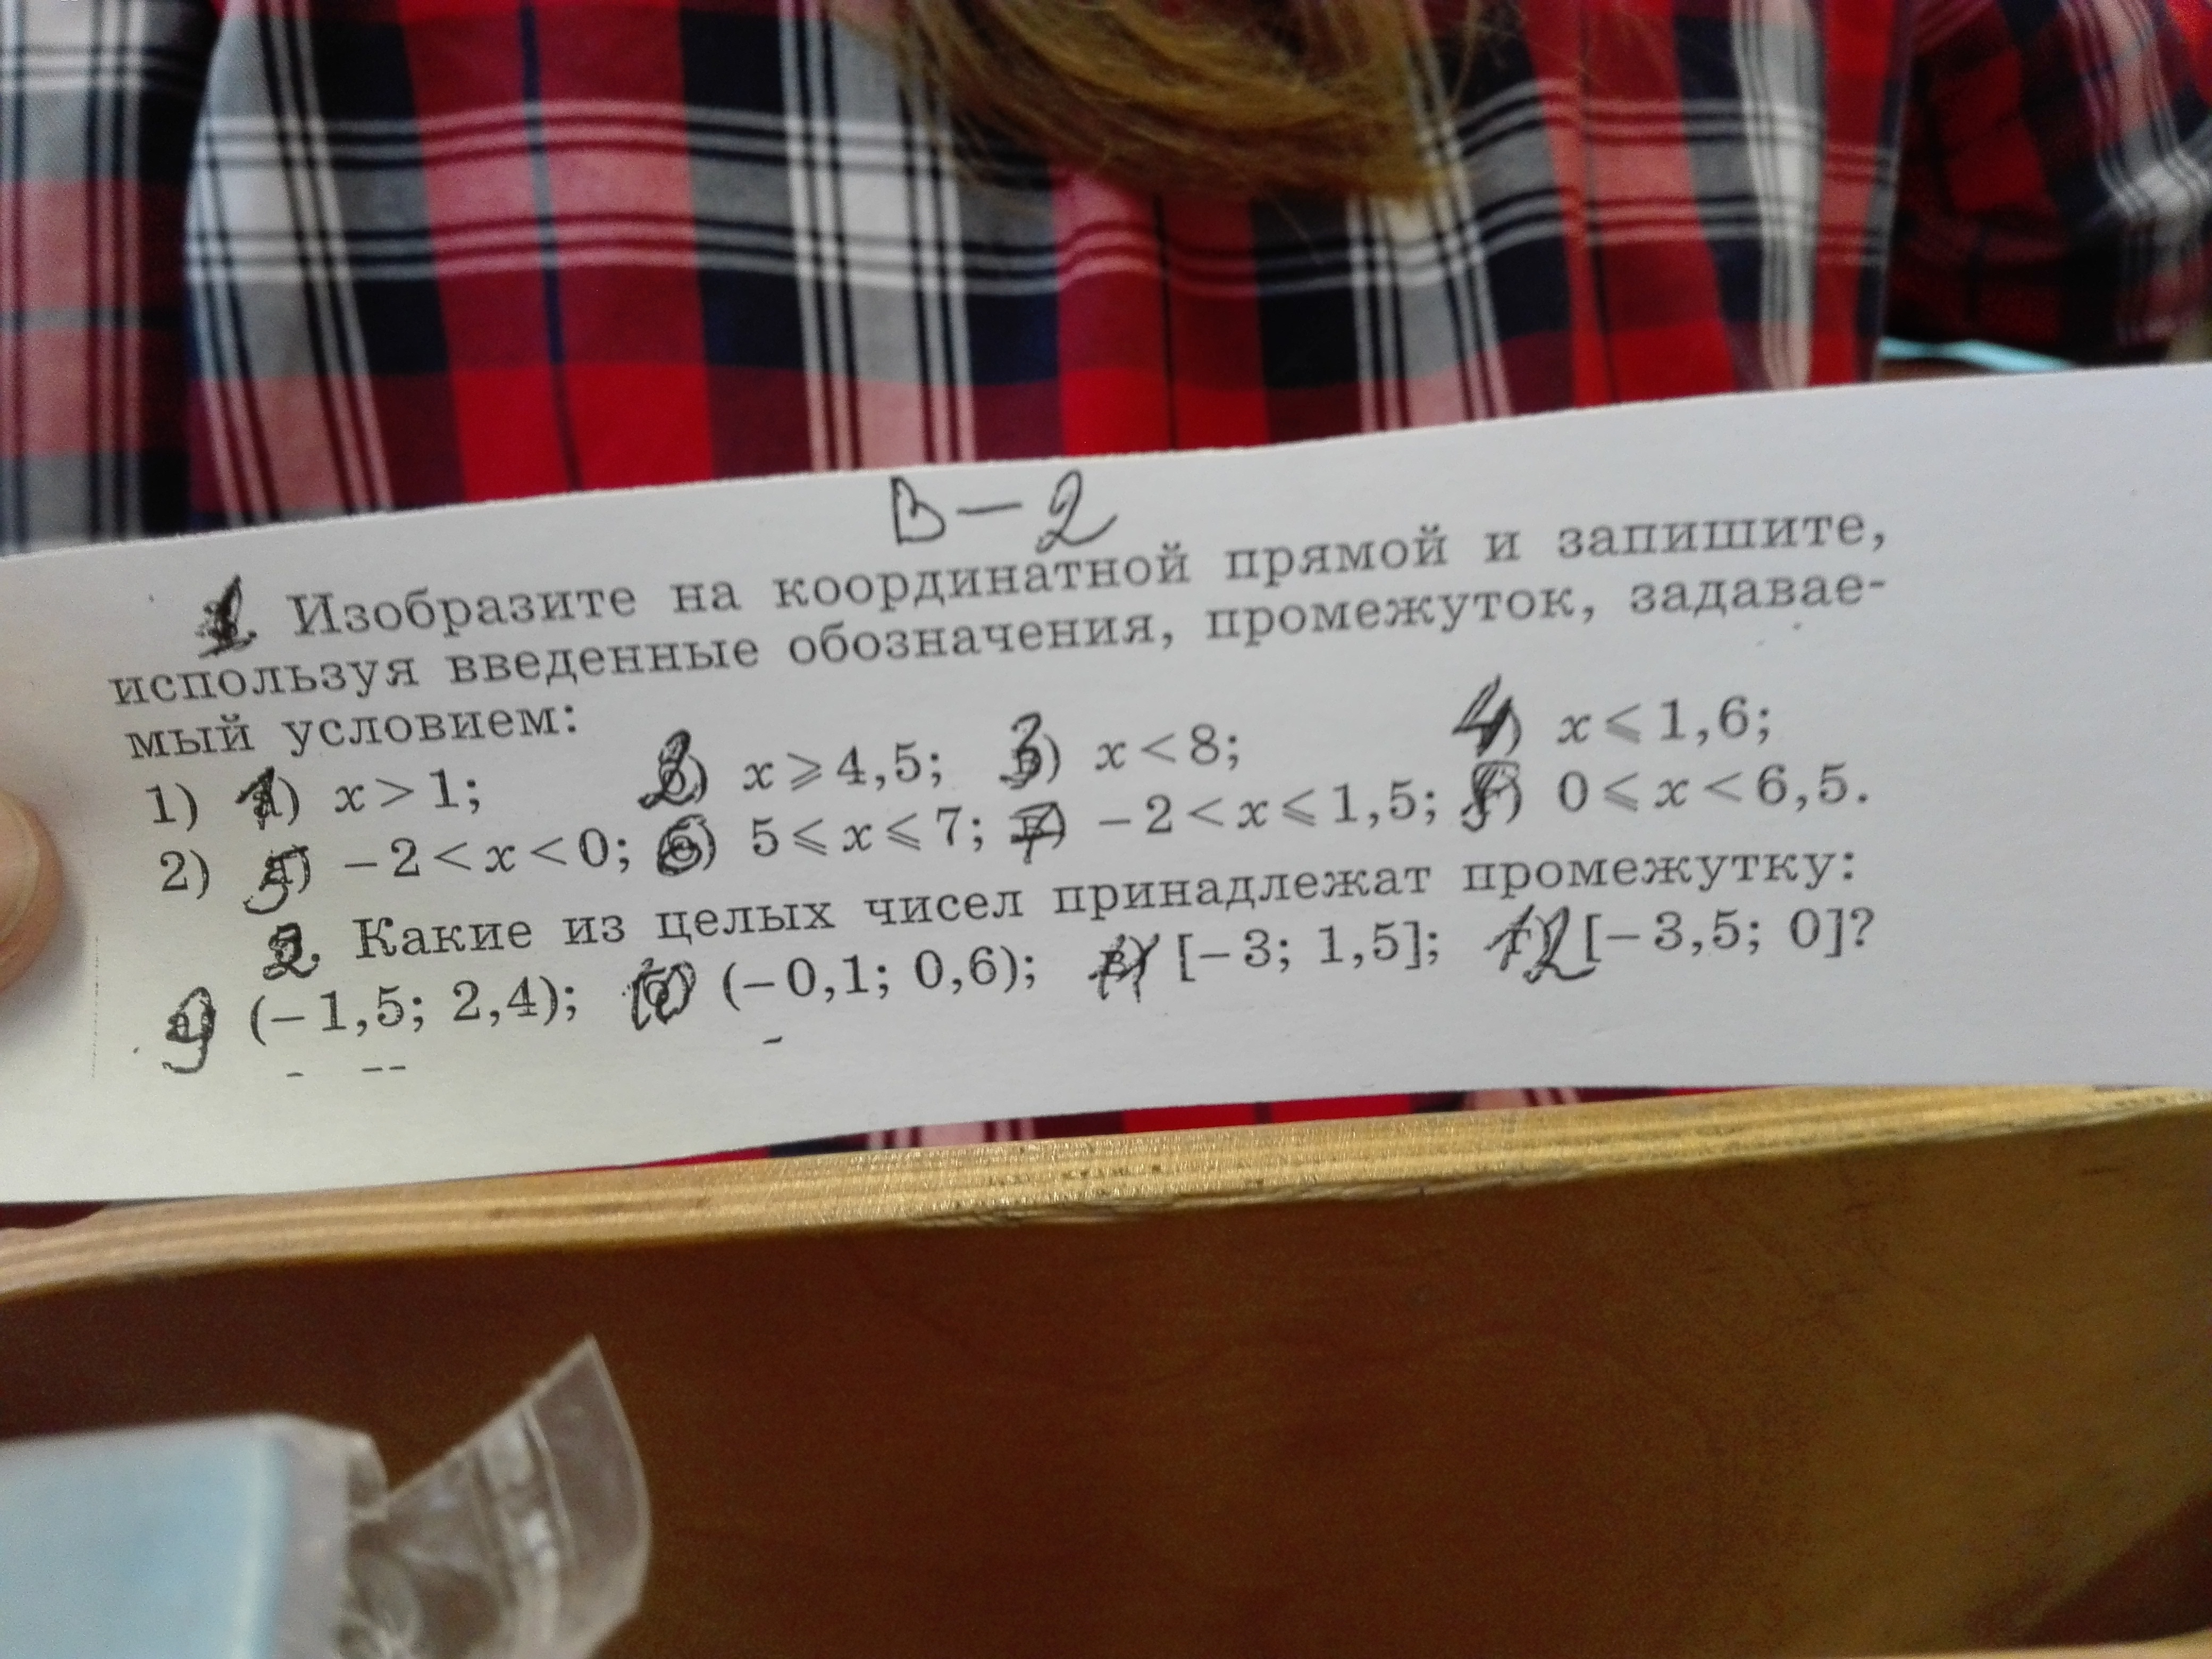 В-2
1. Изобразите на координатной прямой и запишите,
используя введенные обозначения, промежуток, задавае-
мый условием:
1) 1) x > 1; 2) x ⩾ 4,5; 3) x < 8; 4) x ⩽ 1,6;
2) 5) −2 < x < 0; 6) 5 ⩽ x ⩽ 7; 7) −2 < x ⩽ 1,5; 8) 0 ⩽ x < 6,5.
2. Какие из целых чисел принадлежат промежутку:
9) (−1,5; 2,4); 10) (−0,1; 0,6); 11) [−3; 1,5]; 12) [−3,5; 0]?